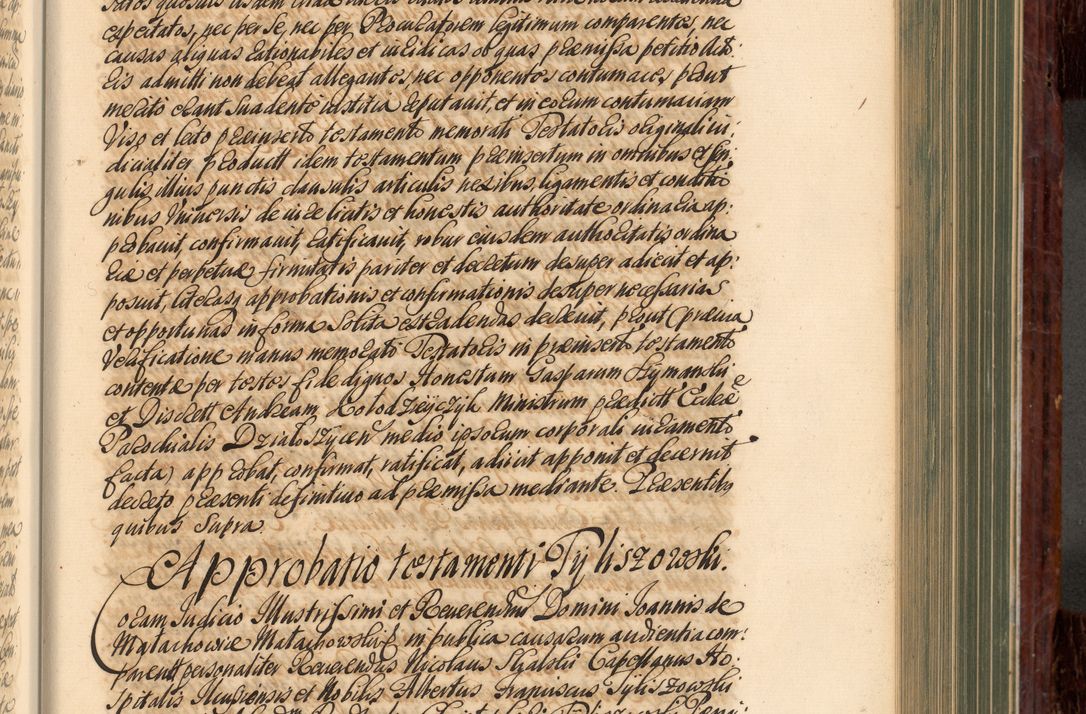 expectatos, nec per se, nec per Procuratorem legitimum comparentes, nec
causas aliquas rationabiles et iuridicas ob quas præmissa petitio Acto
ris admitti non debeat allegantes, nec opponentes contumaces, prout
merito erant suadente iustitia reputauit, et in eorum contumaciam
Viso et lecto præinserto testamento memorati Testatoris originali iu:
dicialiter producti idem testamentum præinsertum in omnibus et sin
gulis illius punctis clausulis articulis nexibus, ligamentis et conditio
nibus Vniuersis de iure licitis et honestis authoritate ordinaria ap:
probauit, confirmauit, ratificauit, robur eiusdem authoritatis ordina
riæ et perpetuæ firmitatis pariter et decretum desuper adiecit et ap:
posuit, literasq approbationis et confirmationis desuper necessarias
et opportunas in forma solita extradendas decreuit, prout (præuia
Verificatione manus memorati Testatoris in præinserto testamento
contentæ per testes fide dignos Honestum Gasparum Hymanski
et Discrett Andream Kolodzieyczyk Ministrum prædictt Eccłæ
Parochialis Działoszycen medio ipsorum corporali iuramento
facta) approbat, confirmat, ratificat, adiicit apponit et decernit
decreto præsenti definitiuo ad præmissa mediante. Præsentibg
quibus Supra.
Approbatio testamenti Tyliszowski.
Coram Iudicio Illustrissimi et Reuerendissi Domini Ioannis de
Małachowice Małachowski in publica causarum audientia com:
parent personaliter Reuerendus Nicolaus Capellanus Ho,
spitalis et Nobilis Albertus Franciscus Tyliszowski